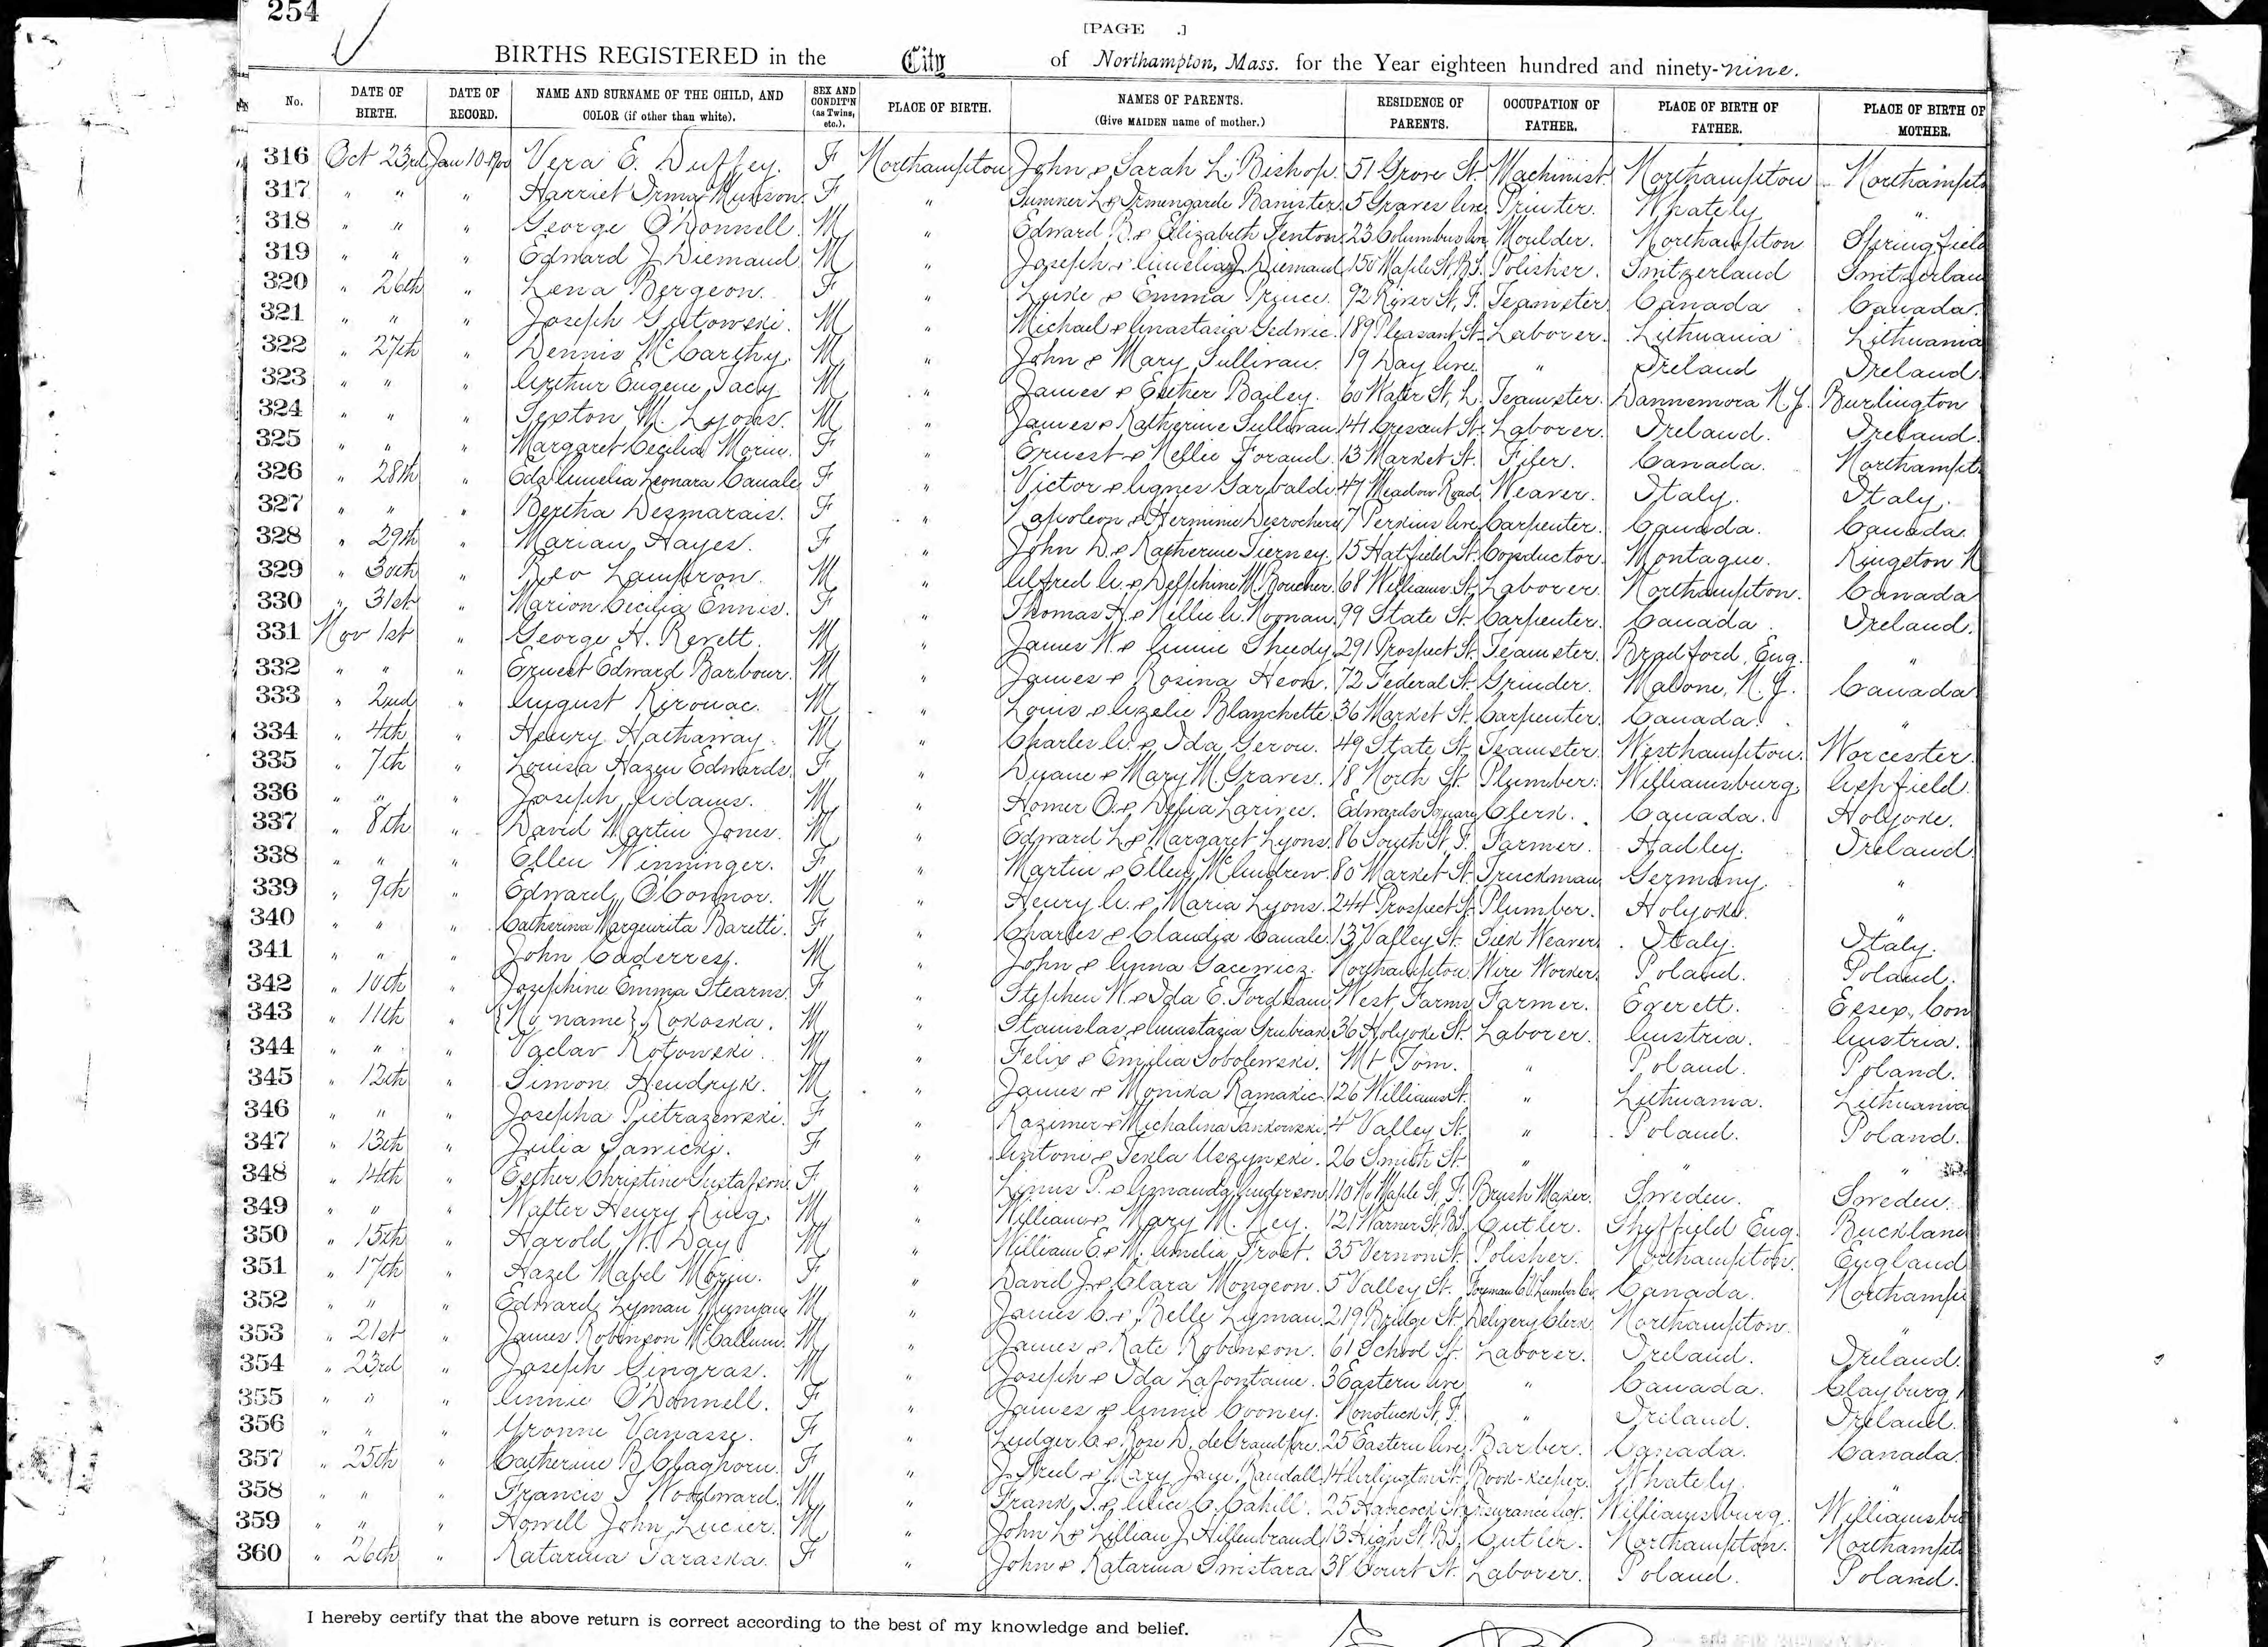 254
[PAGE .]
BIRTHS REGISTERED in the City of Northampton, Mass. for the Year eighteen hundred and ninety-nine.
No. DATE OF BIRTH. DATE OF RECORD. NAME AND SURNAME OF THE CHILD, AND COLOR (if other than white). SEX AND CONDIT'N (as Twins, etc.). PLACE OF BIRTH. NAMES OF PARENTS. (Give MAIDEN name of mother.) RESIDENCE OF PARENTS. OCCUPATION OF FATHER. PLACE OF BIRTH OF FATHER. PLACE OF BIRTH OF MOTHER.
316 Oct 23rd Jan 10 1900 Vera E. Duffey. F Northampton John & Sarah L. Bishop. 51 Grove St. Machinist. Northampton Northampt
317 " " " Harriet Irma Munson. F " Sumner L. & Irmengarde Banister. 5 Graves Ave. Printer. Whately "
318 " " " George O'Donnell. M " Edward R. & Elizabeth Fenton. 23 Columbus Ave. Moulder. Northampton Springfield
319 " " " Edward J. Diemand M " Joseph & Amelia J. Diemand 150 Maple St, B.S. Polisher. Switzerland Switzerlan
320 " 26th " Lena Bergeon. F " Luke & Emma Prince. 92 River St, F. Teamster. Canada Canada.
321 " " " Joseph Gutowski. M " Michael & Anastasia Gedwic. 189 Pleasant St. Laborer. Lithuania Lithuania
322 " 27th " Dennis McCarthy. M " John & Mary Sullivan. 19 Day Ave. " Ireland Ireland.
323 " " " Arthur Eugene Tacy. M " James & Esther Bailey. 60 Water St, L. Teamster. Dannemora N.Y. Burlington
324 " " " Sexton M. Lyons. M " James & Katherine Sullivan. 14 Cresant St. Laborer. Ireland. Ireland.
325 " " " Margaret Cecilia Morin. F " Ernest & Nellie Forand. 13 Market St. Filer. Canada. Northampt
326 " 28th " Eda Amelia Leonara Canale F " Victor & Agnes Garibaldi. 47 Meadow Road Weaver. Italy. Italy.
327 " " " Bertha Desmarais. F " Napoleon & Herminie Desrochers 7 Perkins Ave. Carpenter. Canada. Canada.
328 " 29th " Marian Hayes. F " John D. & Katherine Tierney. 15 Hatfield St. Conductor. Montague. Kingston N
329 " 30th " Leo Lampron. M " Alfred A. & Delphine M. Boucher. 68 Williams St. Laborer. Northampton. Canada
330 " 31st " Marion Cecilia Ennis. F " Thomas H. & Nellie A. Noonan. 99 State St. Carpenter. Canada. Ireland.
331 Nov 1st " George H. Revett. M " James W. & Annie Sheedy 291 Prospect St. Teamster. Bradford, Eng. "
332 " " " Ernest Edward Barbour. M " James & Rosina Heon. 72 Federal St. Grinder. Malone, N.Y. Canada
333 " 2nd " August Kirouac. M " Louis & Azelie Blanchette. 36 Market St. Carpenter. Canada. "
334 " 4th " Henry Hathaway. M " Charles A. & Ida Gerow. 49 State St. Teamster. Westhampton. Worcester.
335 " 7th " Louisa Hazen Edwards. F " Duane & Mary M. Graves. 18 North St. Plumber. Williamsburg. Ashfield.
336 " " " Joseph Adams. M " Homer O. & Delia Larivee. Edwards Square Clerk. Canada. Holyoke.
337 " 8th " David Martin Jones. M " Edward L. & Margaret Lyons. 86 South St, F. Farmer. Hadley. Ireland
338 " " " Ellen Winninger. F " Martin & Ellen McAndrew. 80 Market St. Truckman Germany. "
339 " 9th " Edward O'Connor. M " Henry A. & Maria Lyons. 244 Prospect St. Plumber. Holyoke. "
340 " " " Catherina Margeurita Baretti. F " Charles & Claudia Canale. 13 Valley St. Silk Weaver. Italy. Italy.
341 " " " John Caderrey. M " John & Anna Gacewicz. Northampton Wire Worker. Poland. Poland.
342 " 10th " Josephine Emma Stearns. F " Stephen W. & Ida E. Fordham West Farms Farmer. Everett. Essex, Con
343 " 11th " {No name} Kokoska. M " Stanislas & Anastazia Grubiak 36 Holyoke St. Laborer. Austria. Austria.
344 " " " Vaclav Kotowski. M " Felix & Emilia Sobolewski. Mt Tom. " Poland. Poland.
345 " 12th " Simon Hendryk. M " James & Monika Ramakic. 126 Williams St. " Lithuania. Lithuania
346 " " " Josepha Pietrazewski. F " Kazimer & Michalina Jankowski. 4 Valley St. " Poland. Poland.
347 " 13th " Julia Sawicki. F " Antoni & Tekla Uszynski. 26 Smith St. " " "
348 " 14th " Esther Christine Gustafson. F " Linus P. & Amanda Anderson. 110 No Maple St, F. Brush Maker. Sweden. Sweden.
349 " " " Walter Henry King. M " William & Mary M. Ney. 121 Warner St, B.S. Cutler. Sheffield Eng. Buckland
350 " 15th " Harold W. Day M " William E. & M. Amelia Frost. 35 Vernon St. Polisher. Northampton. England
351 " 17th " Hazel Mabel Morin. F " David J. & Clara Mongeon. 5 Valley St. Foreman C.V. Lumber Co. Canada. Northamp
352 " " " Edward Lyman Munyan M " James C. & Belle Lyman. 219 Bridge St. Delivery Clerk. Northampton. "
353 " 21st " James Robinson McCallum. M " James & Kate Robinson. 61 School St. Laborer. Ireland. Ireland.
354 " 23rd " Joseph Gingras. M " Joseph & Ida Lafontaine. 3 Eastern Ave " Canada. Clayburg,
355 " " " Annie O'Donnell. F " James & Annie Cooney. Nonotuck St, F. " Ireland. Ireland.
356 " " " Yvonne Vanasse. F " Ludger C. & Rose D. de Grandpre. 25 Eastern Ave. Barber. Canada. Canada.
357 " 25th " Catherine B. Claghorn. F " J. Fred & Mary Jane Randall. 14 Arlington St. Book-keeper. Whately. "
358 " " " Francis J. Woodward. M " Frank T. & Alice C. Cahill. 25 Hancock St. Insurance Agt. Williamsburg. Williamsbu
359 " " " Howell John Lucier. M " John L. & Lillian J. Hillenbrand 13 High St, B.S. Cutler. Northampton. Northampt
360 " 26th " Katarina Taraska. F " John & Katarina Swistara 38 Court St. Laborer. Poland. Poland.
I hereby certify that the above return is correct according to the best of my knowledge and belief.